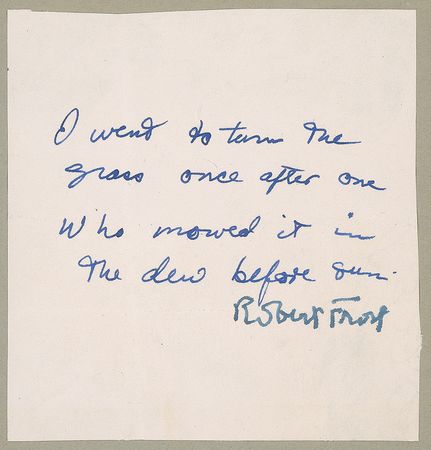 I went to turn the
grass once after one
Who mowed it in
the dew before sun.
Robert Frost